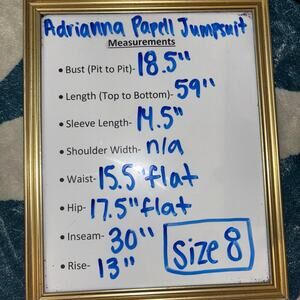 Adrianna Papell Jumpsuit
Measurements
• Bust (Pit to Pit)- 18.5"
• Length (Top to Bottom)- 59"
• Sleeve Length- 14.5"
• Shoulder Width- n/a
• Waist- 15.5" flat
• Hip- 17.5" flat
• Inseam- 30"
• Rise- 13"
Size 8